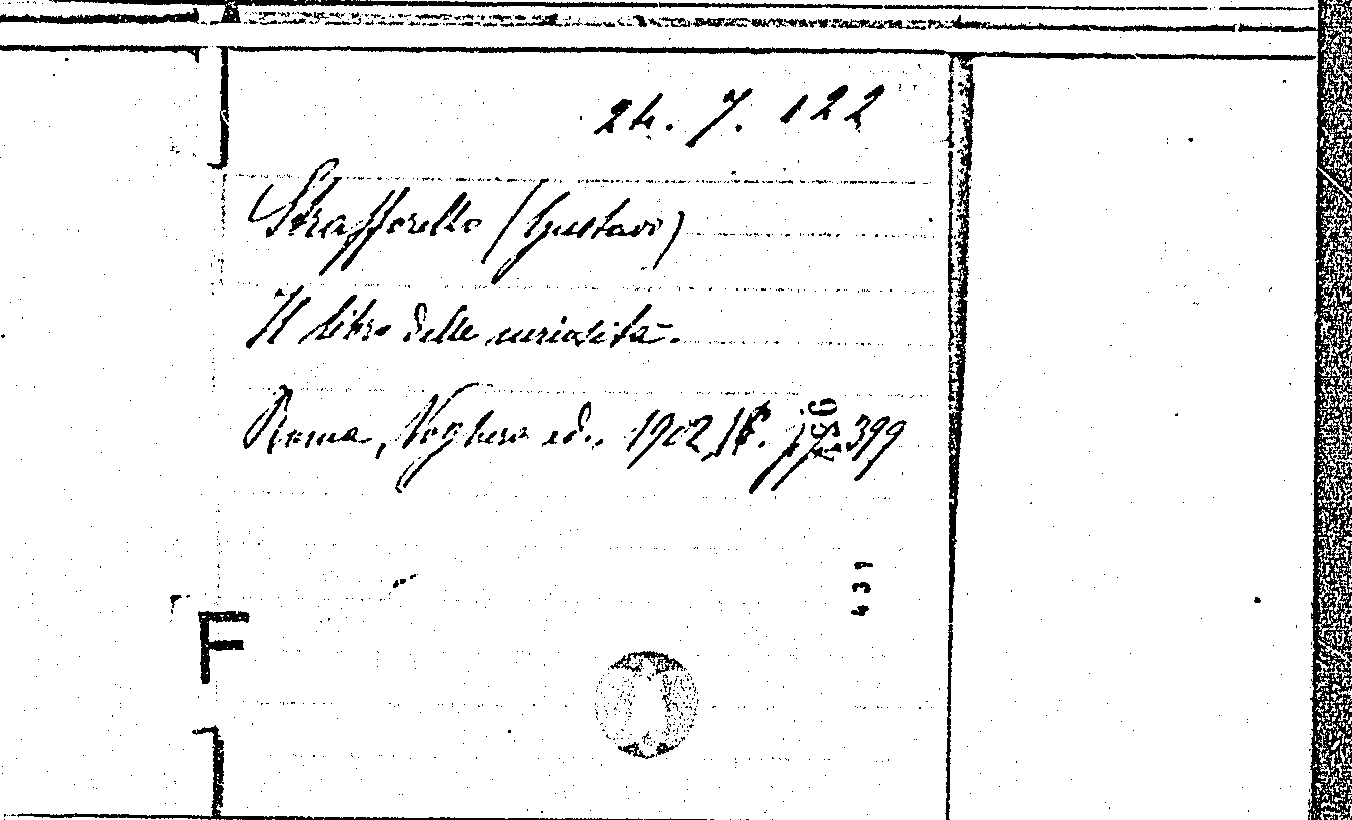 24. 7. 122
Strafforello (Gustavo)
Il libro delle curiosità.
Roma, Voghera ed., 1902, 399
431